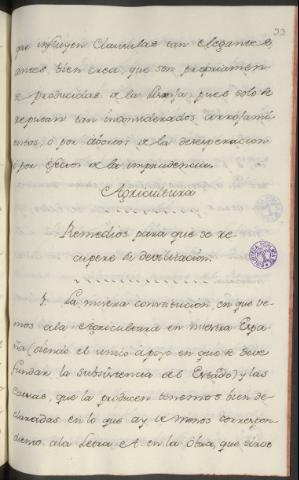 33
que influyen Clausulas tan elegantes,
antes bien crea, que son propriamen
te producidas de la Prosa, pues solo se
reputan tan inconsiderados arrojami
entos, ó por abortos de la desesperacion
ó por efectos de la imprudencia.
Agricultura
Remedios para que se re
cupere su debilitacion.
1. La misera constitucion, en que ve
mos a la Agricultura en nuestra Espa
ña (siendo el unico apoyo en que se deve
fundar la subsistencia del Estado) y las
causas, que la producen tenemos bien de
claradas en lo que ay de menos correspon
diente a la Letra A. en la Obra, que sirve